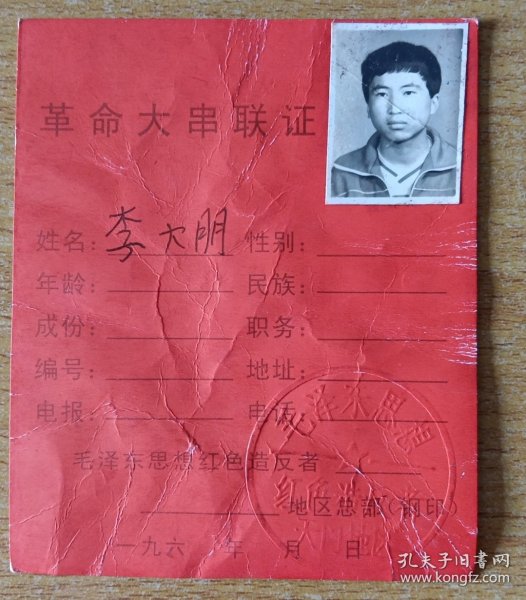 革命大串联证
姓名：李大朋 性别：
年龄： 民族：
成份： 职务：
编号： 地址：
电报： 电话：
毛泽东思想红色造反者
地区总部（钢印）
一九六 年 月 日
毛泽东思想
孔夫子旧书网
www.kongfz.com